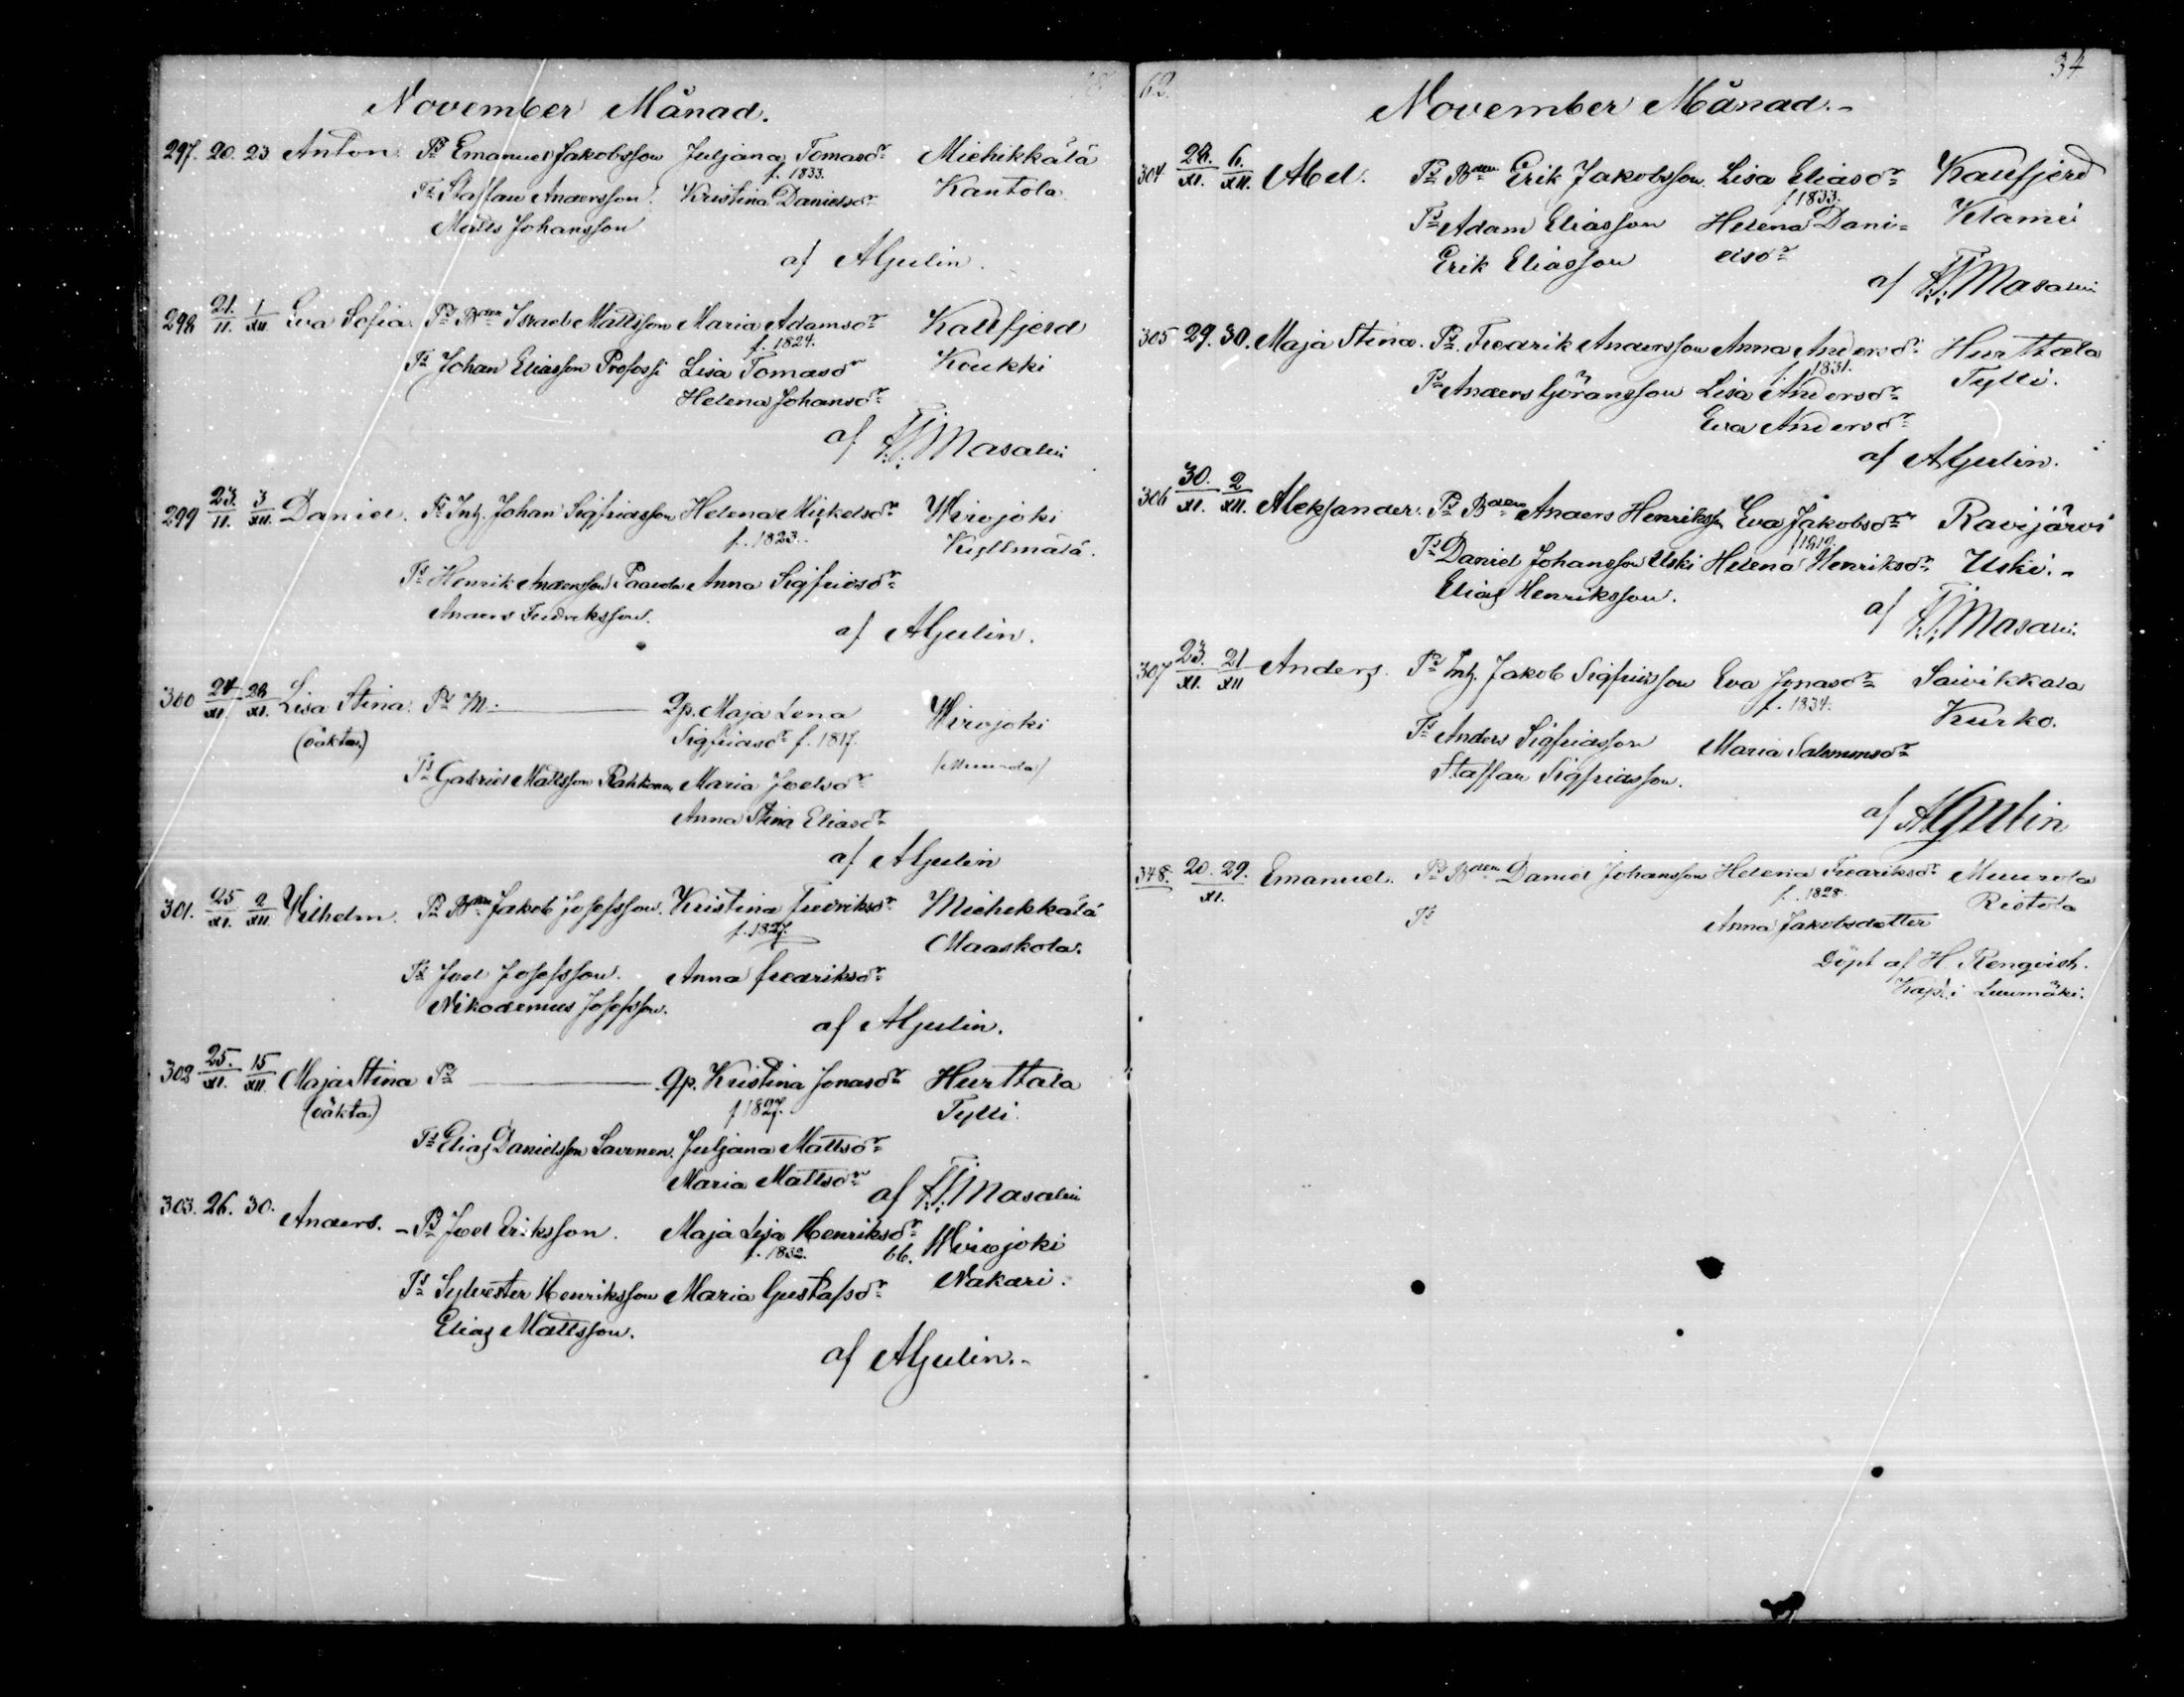 November Månad.
297. 20. 23 Anton. Ps Emanuel Jakobsson Juljana Tomasdr Miehikkälä
f. 1833.
Ts Staffan Andersson. Kristina Danielsdr Kantola
Matts Johansson
af AGulin.
298 21./11. 1/XII Eva Sofia. Ps Bden Israel Mattsson Maria Adamsdr Kallfjerd
f. 1824.
Ts Johan Eliasson Profossi Lisa Tomasdr Koukki
Helena Johansdr
af Masalin
299 23./11. 3/XII. Daniel. Ps Inh. Johan Sigfridsson Helena Mickelsdr Wirojoki
f. 1823. Kyllmälä.
Ts Henrik Andersson Paavola Anna Sigfridsdr
Anders Fredriksson.
af AGulin.
300 24/XI. 28/XI. Lisa Stina. Ps M. Qp. Maja Lena Wirojoki
(oäkta.) Sigfridsdr f. 1817.
Ts Gabriel Mattsson Rahkonen Maria Joelsdr (Muurola)
Anna Stina Eliasdr
af AGulin
301. 25/XI. 2/XII. Vilhelm. Ps Bden Jakob Josefsson. Kristina Fredriksdr Miehikkälä
f. 1827. Maaskola.
Ts Joel Josefsson. Anna fredriksdr
Nikodemus Josefsson.
af AGulin.
302 25./XI. 15/XII. Maja Stina Ps Qp. Kristina Jonasdr Hurttala
(oäkta) f 1827. Tylli.
Ts Elias Danielsson Lavonen. Juljana Mattsdr
Maria Mattsdr af Masalin
303. 26. 30. Anders. – Ps Joel Eriksson. Maja Lisa Henriksdr Wirojoki
f. 1832. bb.
Ts Sylvester Henriksson Maria Gustafsdr Nakari.
Elias Mattsson.
af AGulin.-
62. 34
November Månad.-
304 28./XI. 6./XII. Abel. Ps Bden Erik Jakobsson. Lisa Eliasdr Kallfjerd
f 1833.
Ts Adam Eliasson Helena Dani= Velami
Erik Eliasson elsdr
af Masalin
305 29. 30. Maja Stina. Ps. Fredrik Andersson Anna Andersdr Hurttala
f. 1831.
Ts Anders Göransson Lisa Andersdr Tylli.
Eva Andersdr
af AGulin.
306 30./XI. 2/XII. Aleksander. Ps Bden Anders Henriksson Eva Jakobsdr Ravijärvi
f 1819.
Ts Daniel Johansson Uski Helena Henriksdr Uski.-
Elias Henriksson.
af Masalin
307 23./XI. 21/XII Anders. Ps Inh. Jakob Sigfridsson Eva Jonasdr Saivikkala
f. 1834.
Ts Anders Sigfridsson Maria Salomonsdr Kurko.
Staffan Sigfridsson.
af AGulin
348. 20. 29./XI. Emanuel. Ps Bden Daniel Johansson Helena Fredriksdr Muurola
f. 1828.
Ts Anna Jakobsdotter Ristola
Döpt af H. Renqvist.
Kapl. i Luumäki.